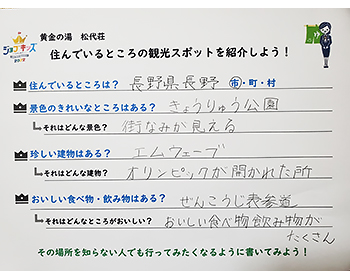 黄金の湯 松代荘
ジョブキッズ
住んでいるところの観光スポットを紹介しよう！
住んでいるところは？ 長野県長野 市・町・村
景色のきれいなところはある？ きょうりゅう公園
それはどんな景色？ 街なみが見える
珍しい建物はある？ エムウェーブ
それはどんな建物？ オリンピックが開かれた所
おいしい食べ物・飲み物はある？ ぜんこうじ表参道
それはどんなところがおいしい？ おいしい食べ物飲み物が
たくさん
その場所を知らない人でも行ってみたくなるように書いてみよう！